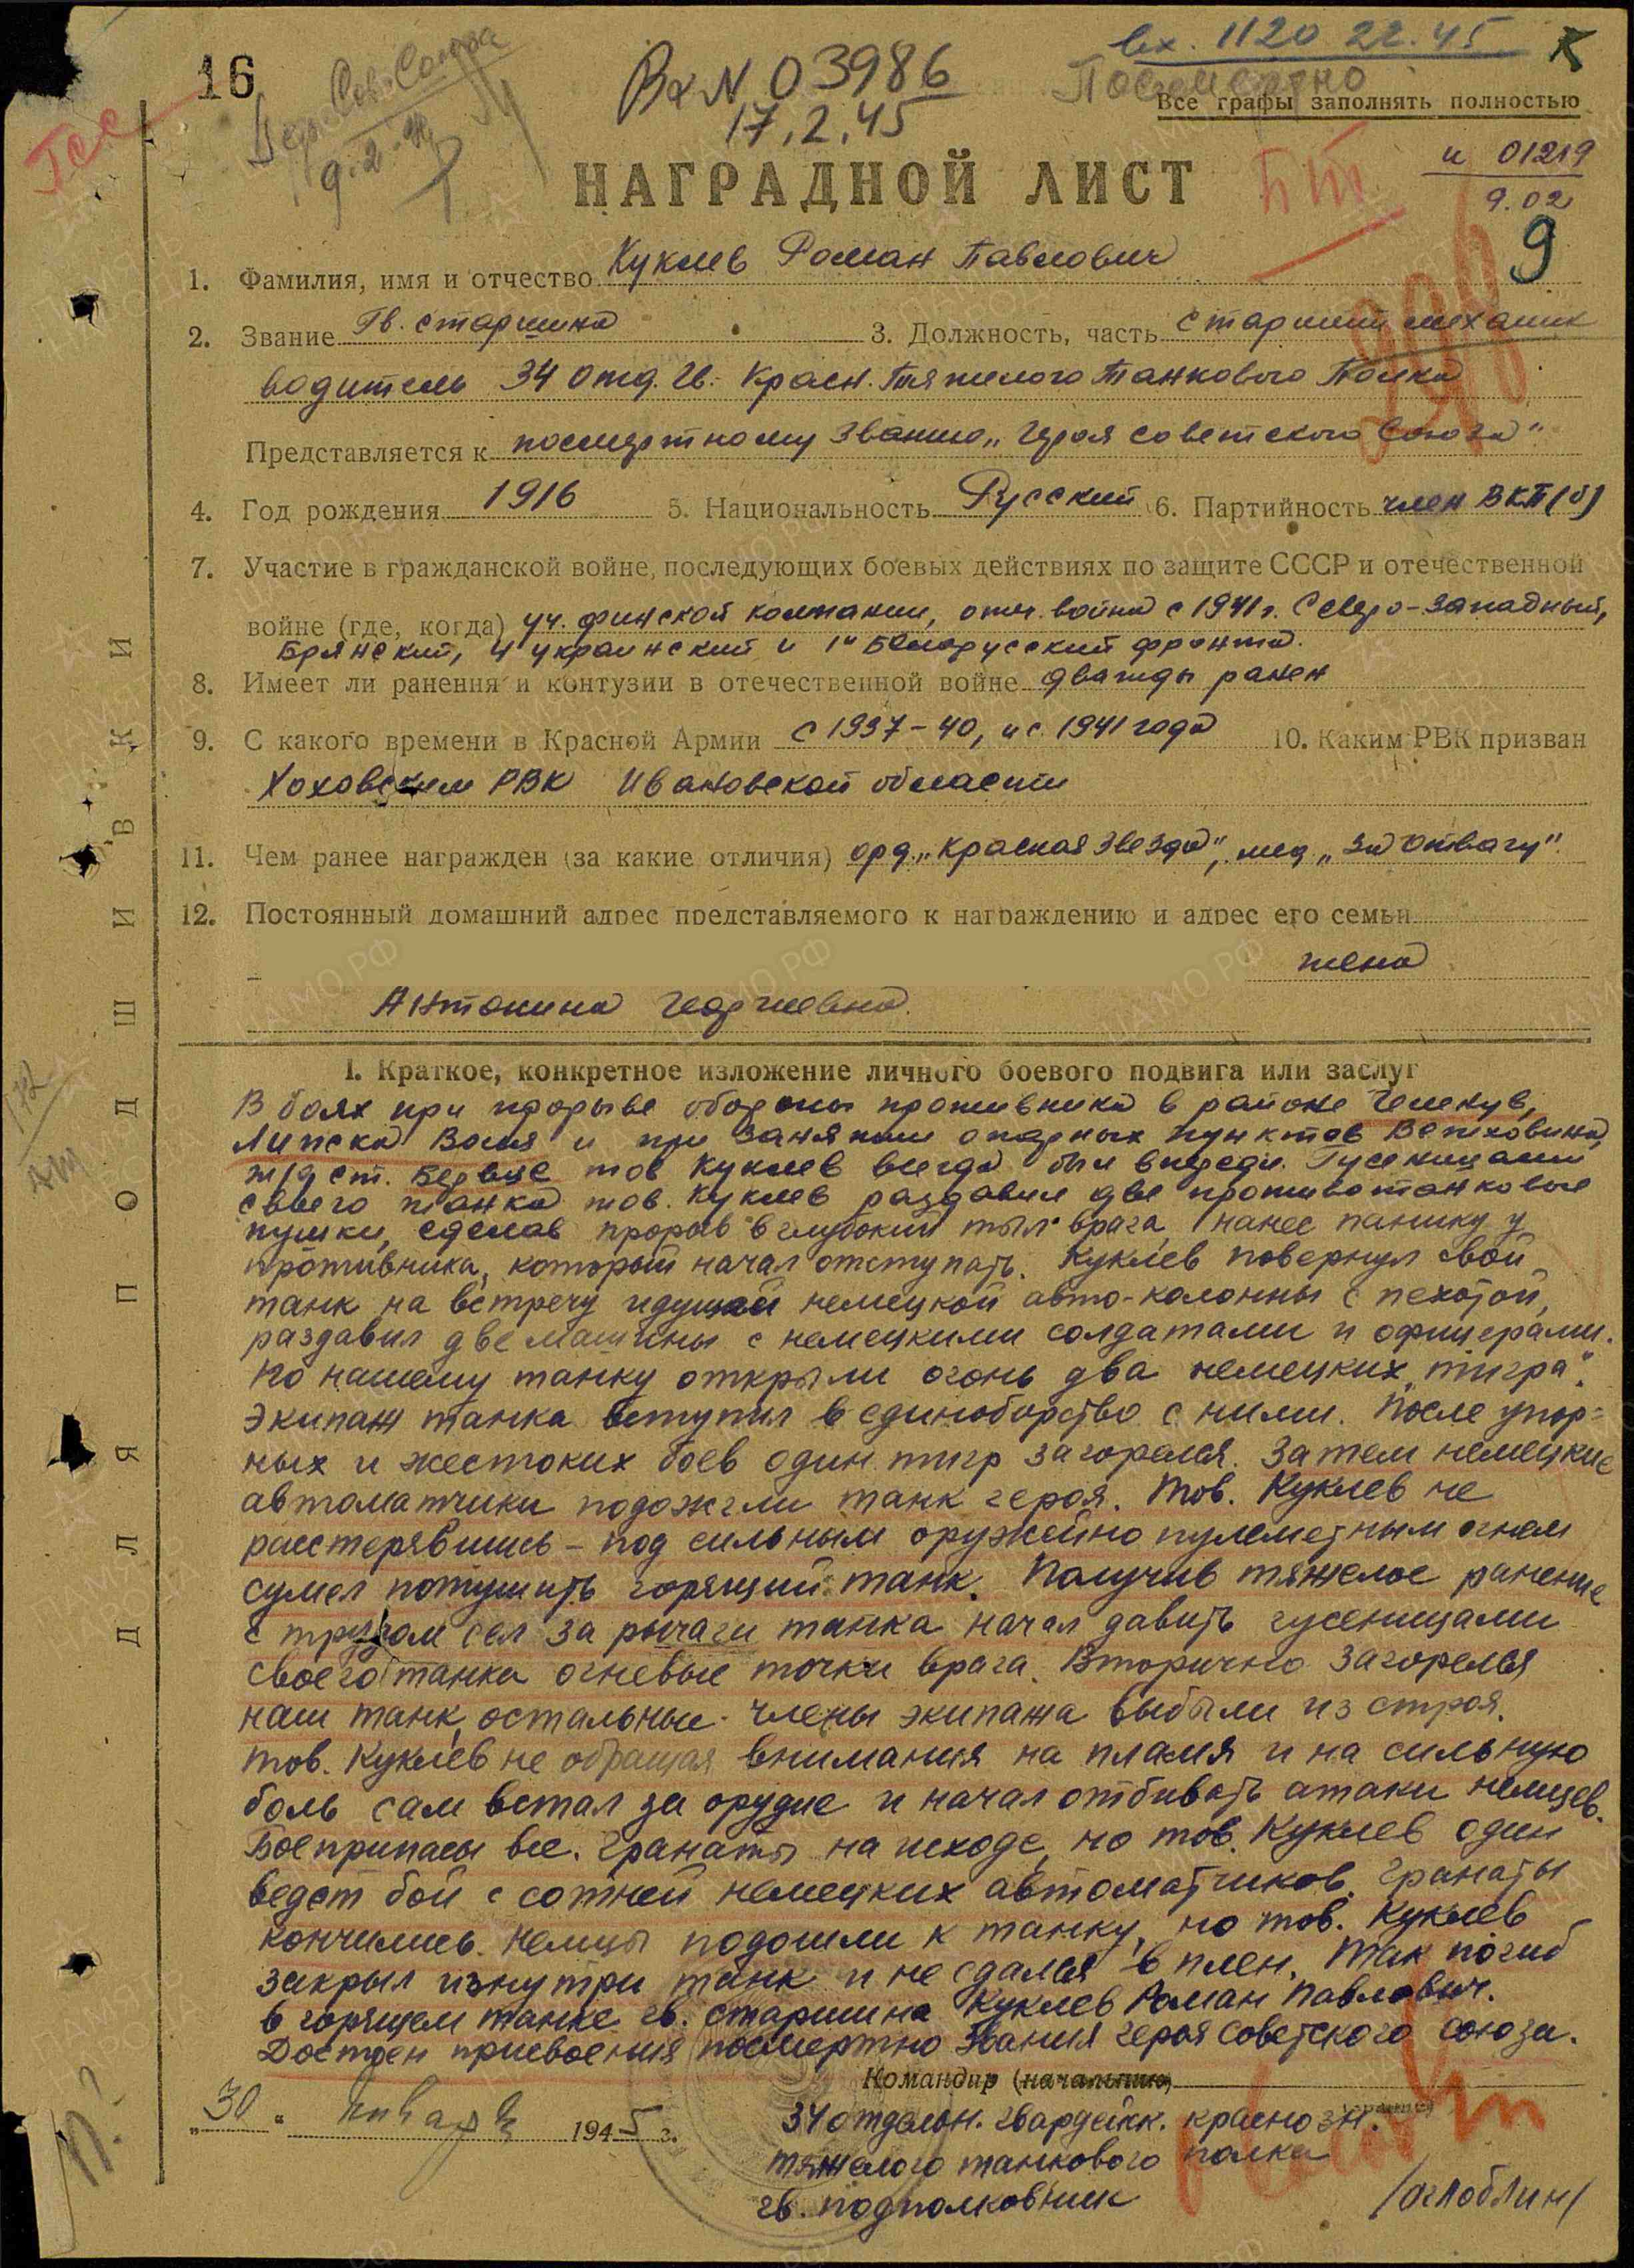 16
Вх N 03986
17.2.45
вх. 1120 22.45
Посмертно
Все графы заполнять полностью
Гсс
Герой Сов. Союза
9.2.
и 01219
9.02
9
НАГРАДНОЙ ЛИСТ
1. Фамилия, имя и отчество Куклев Роман Павлович
2. Звание Гв. старшина 3. Должность, часть старший механик
водитель 34 отд. Гв. Красн. Тяжелого Танкового Полка
Представляется к посмертному званию „Героя советского Союза"
4. Год рождения 1916 5. Национальность Русский 6. Партийность член ВКП(б)
7. Участие в гражданской войне, последующих боевых действиях по защите СССР и отечественной
войне (где, когда) уч. финской компании, отеч. война с 1941 г. Северо-Западный,
Брянский, 4 украинский и 1й Белорусский фронта.
8. Имеет ли ранения и контузии в отечественной войне дважды ранен
9. С какого времени в Красной Армии с 1937-40, и с 1941 года 10. Каким РВК призван
РВК Ивановской области
11. Чем ранее награжден (за какие отличия) орд. „Красная Звезда", мед „За Отвагу"
12. Постоянный домашний адрес представляемого к награждению и адрес его семьи
жена
Антонина Георгиевна.
ДЛЯ ПОДШИВКИ
I. Краткое, конкретное изложение личного боевого подвига или заслуг
В боях при прорыве обороны противника в районе
Липска Воля и при занятии опорных пунктов
ж/д ст. тов Куклев всегда был впереди. Гусеницами
своего танка тов. Куклев раздавил две противотанковые
пушки, сделав прорыв в глубокий тыл врага, нанес панику у
противника, который начал отступать. Куклев повернул свой
танк на встречу идущей немецкой авто-колонны с пехотой,
раздавил две машины с немецкими солдатами и офицерами.
По нашему танку открыли огонь два немецких „тигра".
Экипаж танка вступил в единоборство с ними. После упор=
ных и жестоких боев один тигр загорелся. Затем немецкие
автоматчики подожгли танк героя. Тов. Куклев не
расстерявшись - под сильным оружейно пулеметным огнем
сумел потушить горящий танк. Получив тяжелое ранение
с трудом сел за рычаги танка начал давить гусеницами
своего танка огневые точки врага. Вторично загорелся
наш танк, остальные члены экипажа выбыли из строя.
тов. Куклев не обращая внимания на пламя и на сильную
боль сам встал за орудие и начал отбивать атаки немцев.
Боеприпасы все. Гранаты на исходе, но тов. Куклев один
ведет бой с сотней немецких автоматчиков. Гранаты
кончились. Немцы подошли к танку, но тов. Куклев
закрыл изнутри танк и не сдался в плен. Так погиб
в горящем танке гв. старшина Куклев Роман Павлович.
Достоен присвоения посмертно звания героя советского союза.
Командир (начальник)
„30" января 1945 г.
34 отдельн. гвардейск. краснозн.
тяжелого танкового полка
гв. подполковник /Оглоблин/